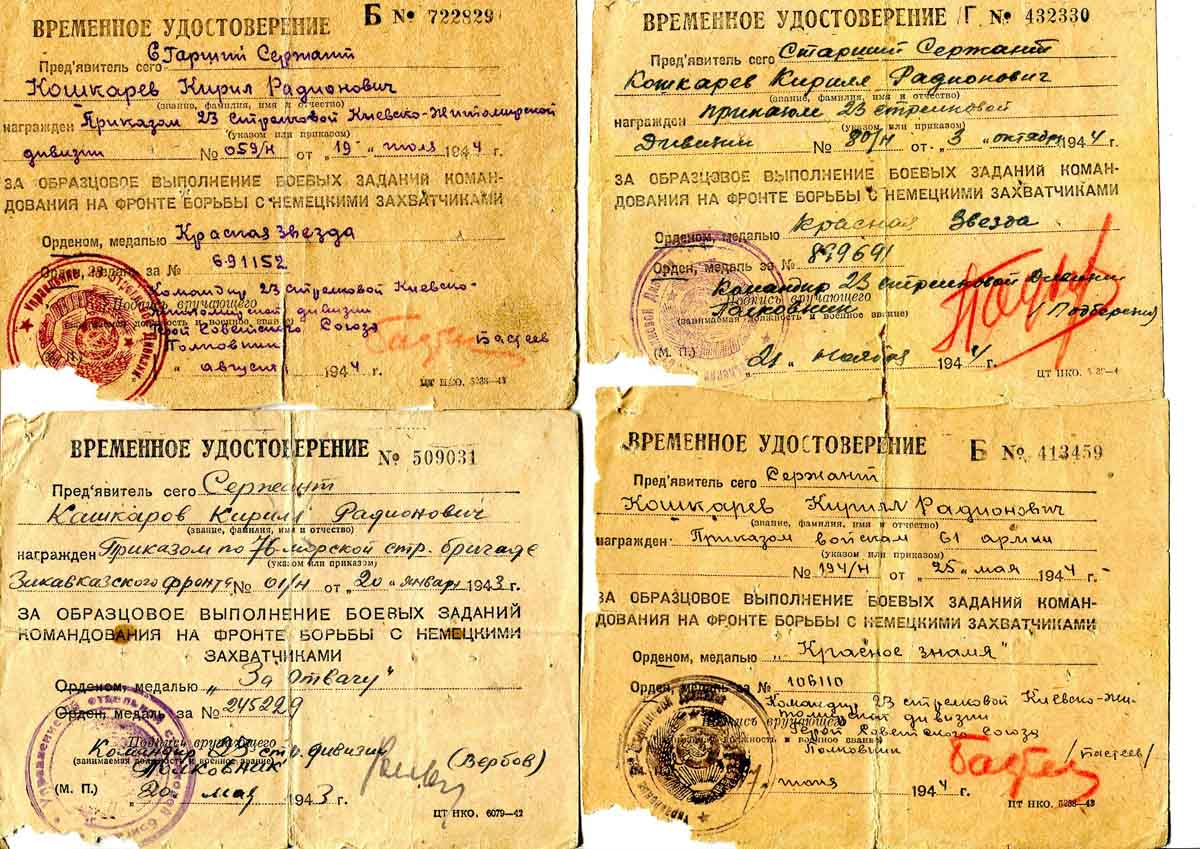 ВРЕМЕННОЕ УДОСТОВЕРЕНИЕ Б № 722829
Пред'явитель сего Старший Сержант
Кошкарев Кирил Радионович
(звание, фамилия, имя и отчество)
награжден Приказом 23 стрелковой Киевско-Житомирской
(указом или приказом)
дивизии № 059/н от „19“ июля 1944 г.
ЗА ОБРАЗЦОВОЕ ВЫПОЛНЕНИЕ БОЕВЫХ ЗАДАНИЙ КОМАН-
ДОВАНИЯ НА ФРОНТЕ БОРЬБЫ С НЕМЕЦКИМИ ЗАХВАТЧИКАМИ
Орденом, медалью Красная Звезда
Орден, медаль за № 691152
Командир 23 стрелковой Киевско-
Подпись вручающего
Житомирской дивизии
(занимаемая должность и военное звание)
Герой Советского Союза
Полковник Бастеев
„ августа 1944 г.
ЦТ НКО. 5288-43
ВРЕМЕННОЕ УДОСТОВЕРЕНИЕ /Г № 432330
Пред'явитель сего Старший Сержант
Кошкарев Кирилл Радионович
(звание, фамилия, имя и отчество)
награжден приказом 23 стрелковой
(указом или приказом)
Дивизии № 80/н от „3“ октября 1944 г.
ЗА ОБРАЗЦОВОЕ ВЫПОЛНЕНИЕ БОЕВЫХ ЗАДАНИЙ КОМАН-
ДОВАНИЯ НА ФРОНТЕ БОРЬБЫ С НЕМЕЦКИМИ ЗАХВАТЧИКАМИ
Орденом, медалью Красная Звезда
Орден, медаль за № 849691
Командир 23 стрелковой Дивизии
Подпись вручающего
Полковник
(занимаемая должность и военное звание)
(М. П.) „21“ ноября 1944 г.
ЦТ НКО.
ВРЕМЕННОЕ УДОСТОВЕРЕНИЕ № 509031
Пред'явитель сего Сержант
Кашкаров Кирилл Радионович
(звание, фамилия, имя и отчество)
награжден Приказом по 76 морской стр. бригаде
(указом или приказом)
Закавказского фронта № 01/н от „20“ января 1943 г.
ЗА ОБРАЗЦОВОЕ ВЫПОЛНЕНИЕ БОЕВЫХ ЗАДАНИЙ
КОМАНДОВАНИЯ НА ФРОНТЕ БОРЬБЫ С НЕМЕЦКИМИ
ЗАХВАТЧИКАМИ
Орденом, медалью „За Отвагу“
Орден, медаль за № 245229
Подпись вручающего
Командир 23 стр. дивизии
(занимаемая должность и военное звание)
Полковник (Вербов)
(М. П.) „20“ мая 1943 г.
ЦТ НКО. 6079—42
ВРЕМЕННОЕ УДОСТОВЕРЕНИЕ Б № 413459
Пред'явитель сего Сержант
Кошкарев Кирилл Радионович
(звание, фамилия, имя и отчество)
награжден Приказом войскам 61 армии
(указом или приказом)
№ 194/н от „25“ мая 1944 г.
ЗА ОБРАЗЦОВОЕ ВЫПОЛНЕНИЕ БОЕВЫХ ЗАДАНИЙ КОМАН-
ДОВАНИЯ НА ФРОНТЕ БОРЬБЫ С НЕМЕЦКИМИ ЗАХВАТЧИКАМИ
Орденом, медалью „Красное знамя“
Орден, медаль за № 106110
Командир 23 стрелковой Киевско-Жи-
Подпись вручающего
томирской дивизии
должность и военное звание)
Герой Советского Союза
Полковник
1944 г.
ЦТ НКО. 5288-43